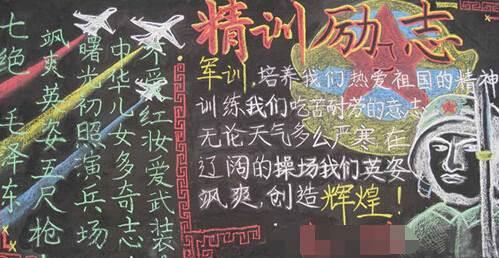 精训励志
军训,培养我们热爱祖国的精神
训练我们吃苦耐劳的意志
无论天气多么严寒在
辽阔的操场我们英姿
飒爽,创造辉煌!
七绝 毛泽东
飒爽英姿五尺枪
曙光初照演兵场
中华儿女多奇志
不爱红妆爱武装